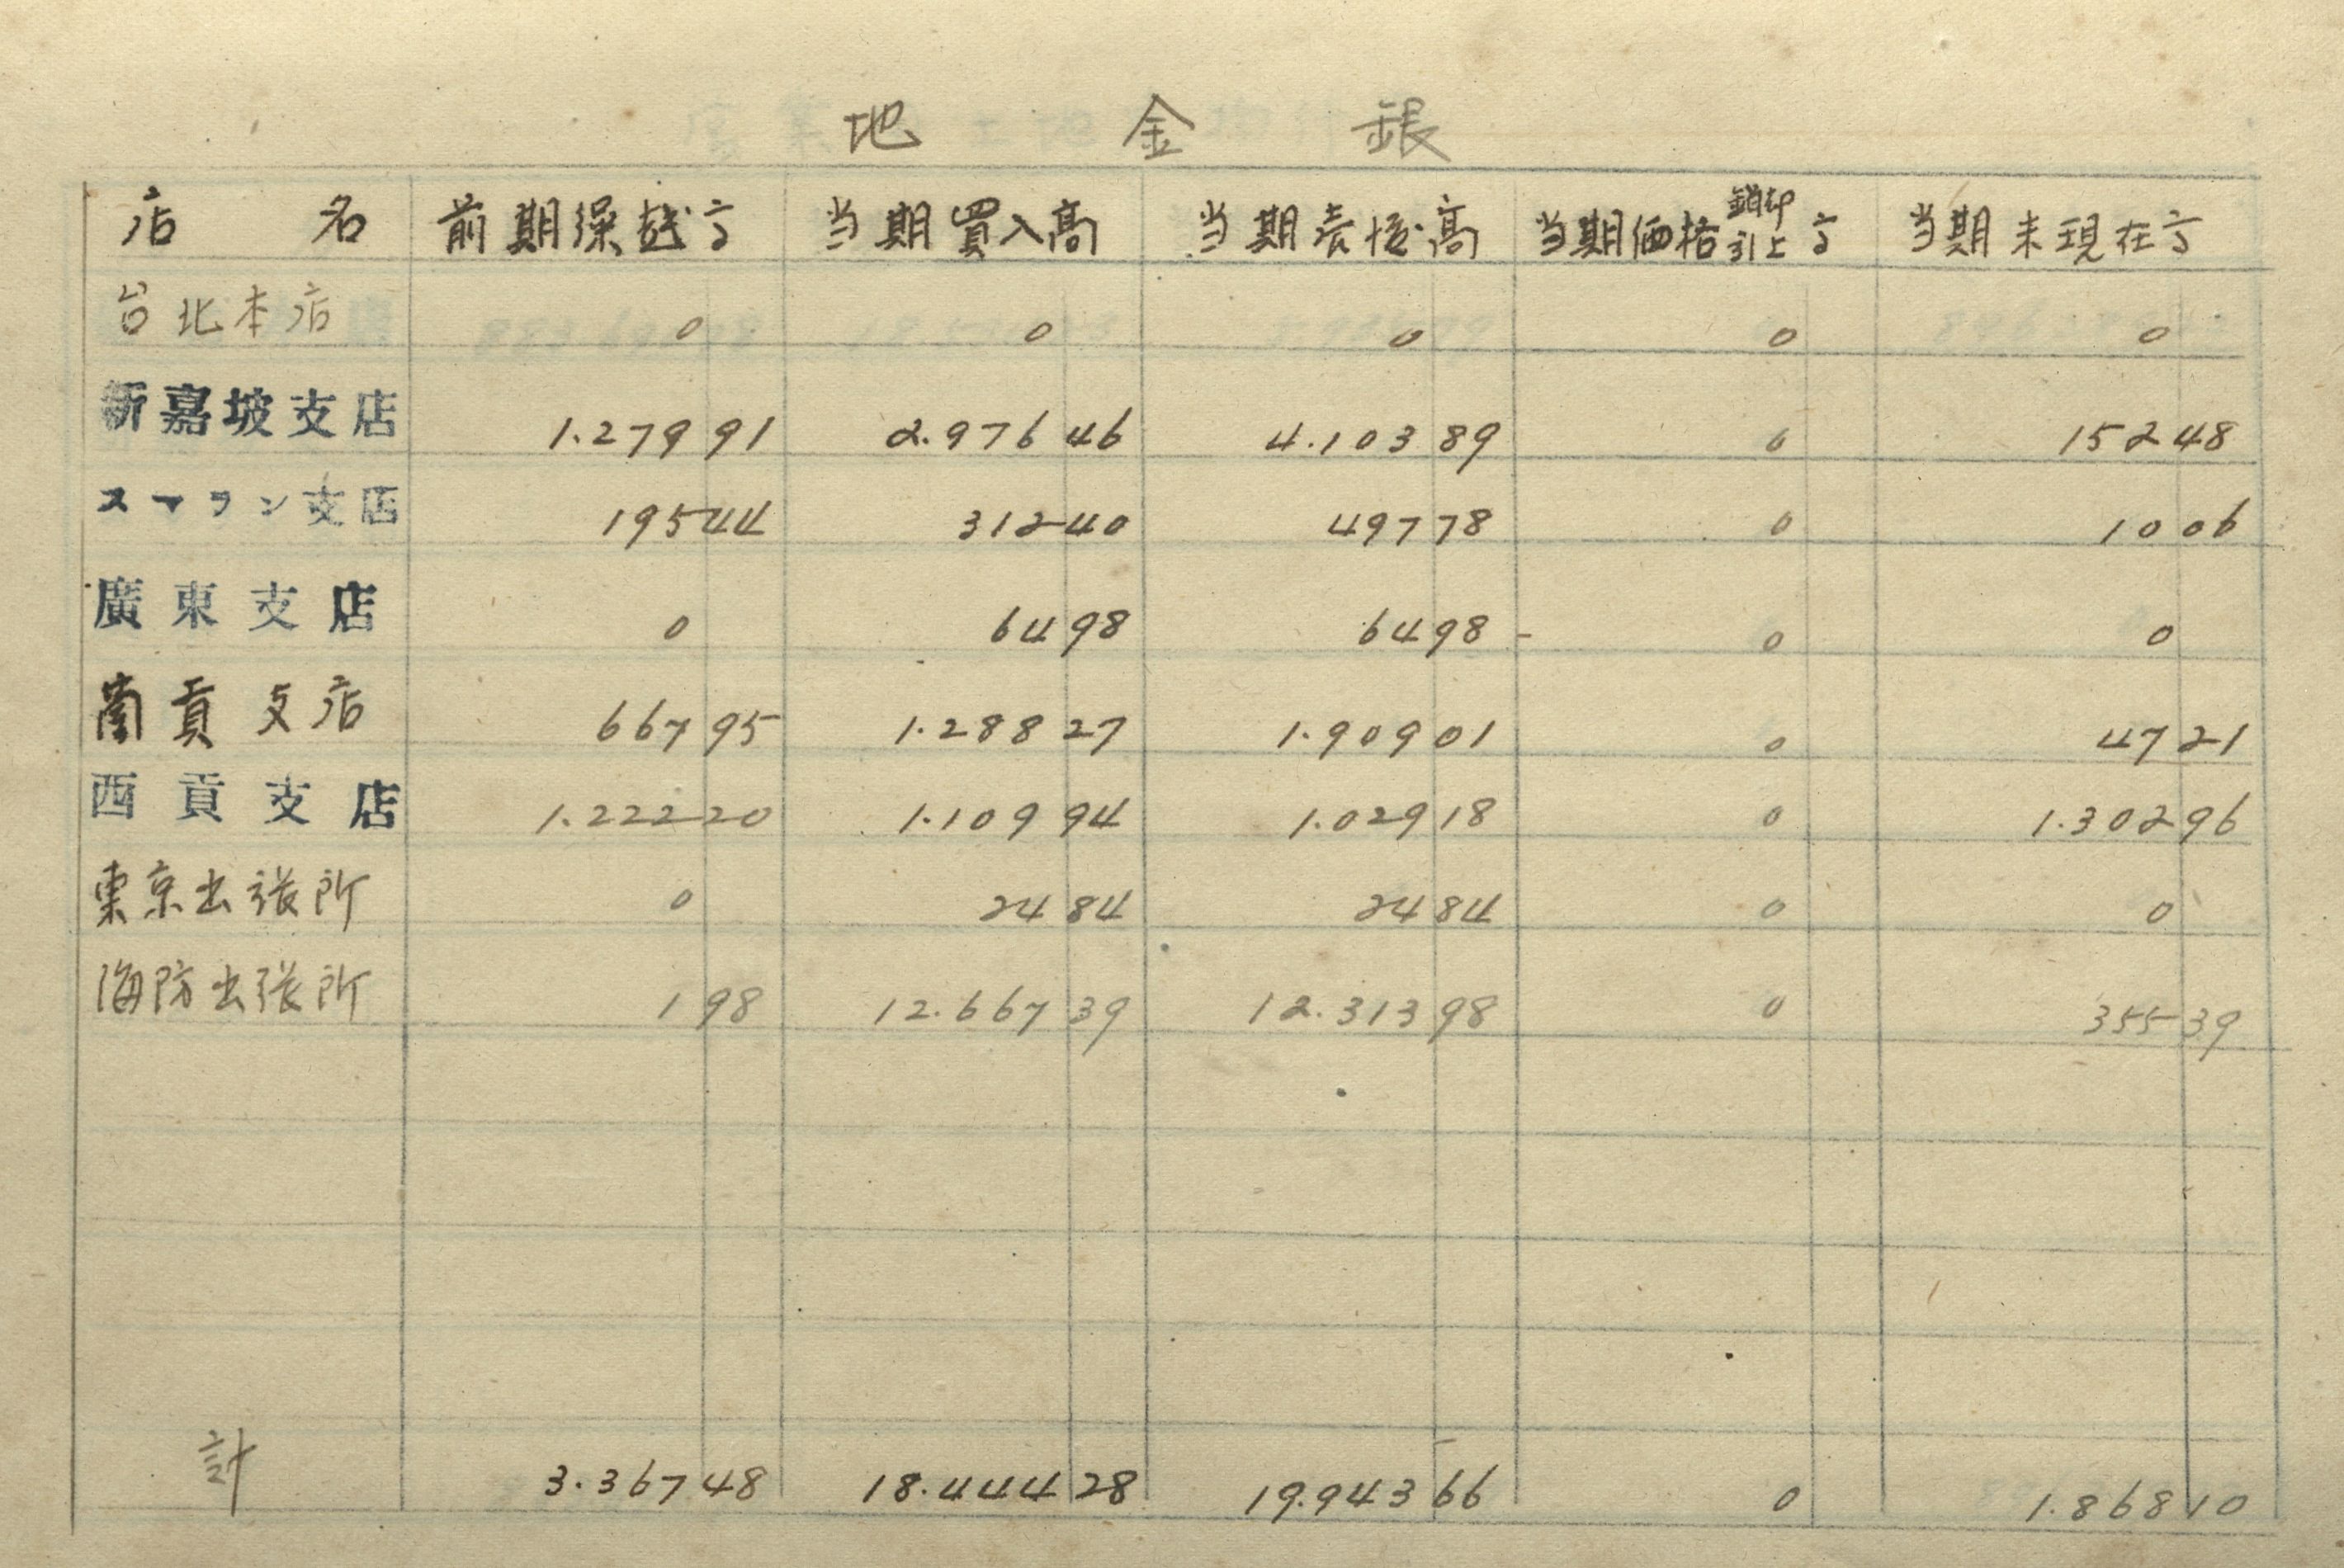 地金銀
店名 前期繰越高 当期買入高 当期売渡高 当期価格銷却引上高 当期末現在高
台北本店 0 0 0 0 0
新嘉坡支店 1.279 91 2.976 46 4.103 89 0 152 48
スマラン支店 195 44 312 40 497 78 0 10 06
廣東支店 0 64 98 64 98 0 0
蘭貢支店 667 95 1.288 27 1.909 01 0 47 21
西貢支店 1.222 20 1.109 94 1.029 18 0 1.302 96
東京出張所 0 24 84 24 84 0 0
海防出張所 1 98 12.667 39 12.313 98 0 355 39
計 3.367 48 18.444 28 19.943 66 0 1.868 10